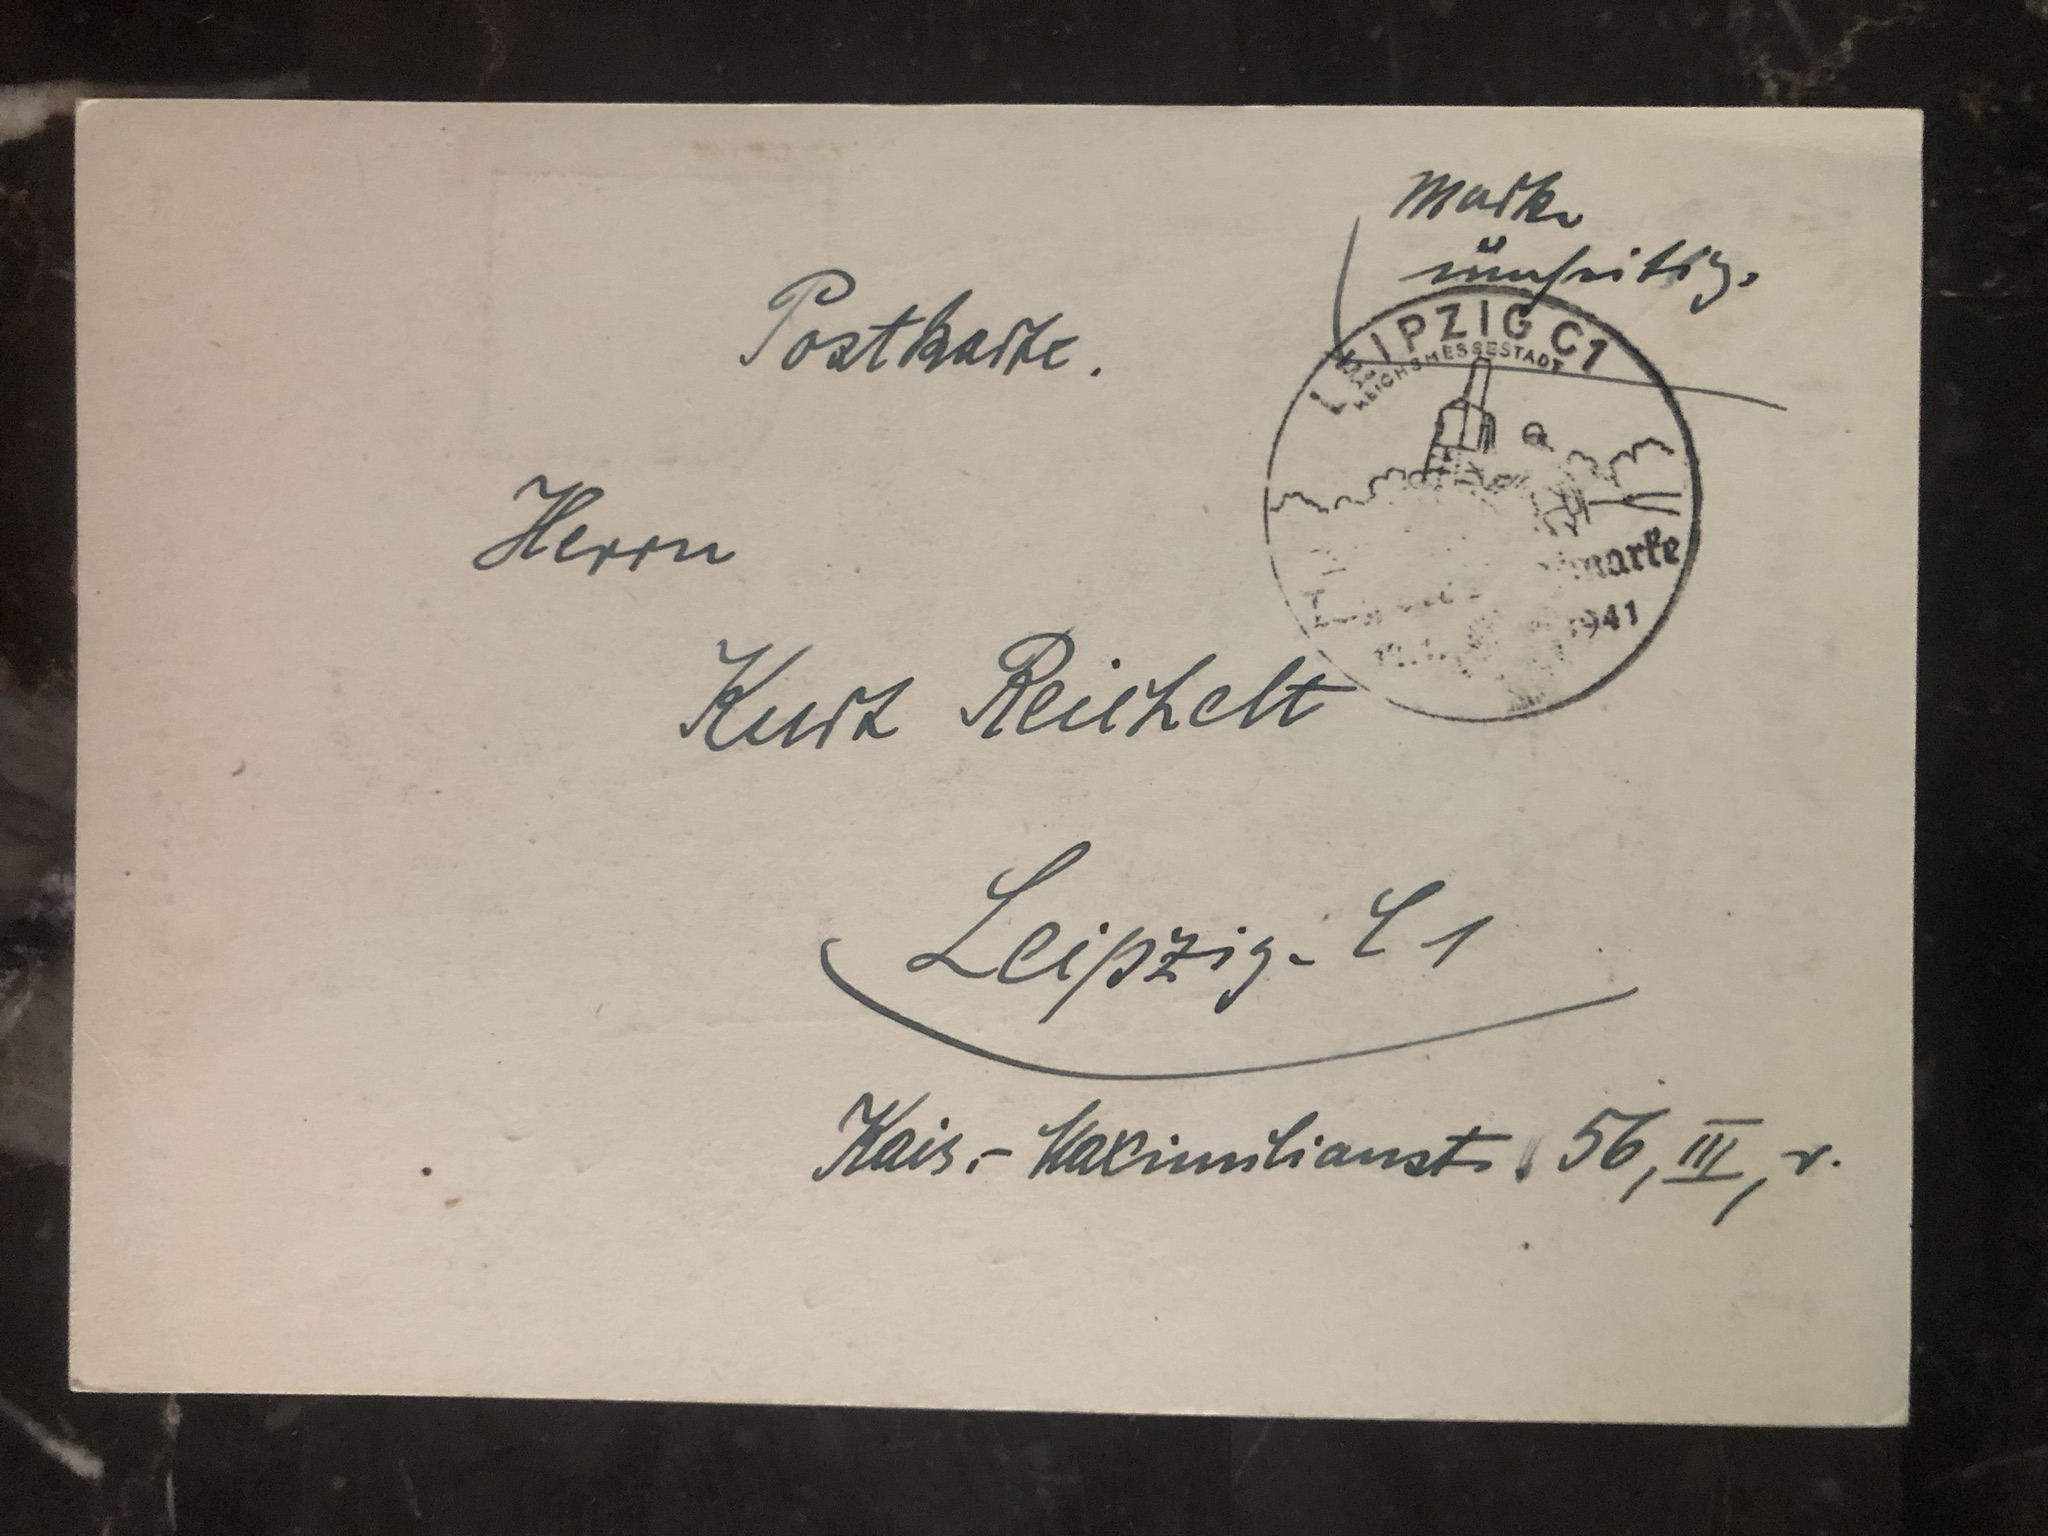 Marke
umseitig.
Postkarte.
LEIPZIG C1
REICHSMESSESTADT
marke
1941
Herrn
Kurt Reichelt
Leipzig-C1
Kais.-Maximilianstr. 56, III, r.